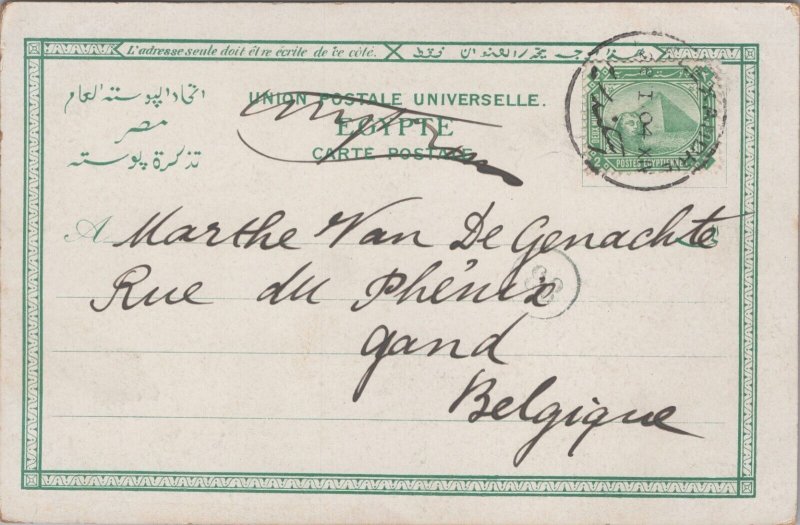 L'adresse seule doit être écrite de ce côté.
اتحاد البوسته العام
مصر
تذكرة پوسته
UNION POSTALE UNIVERSELLE.
EGYPTE
CARTE POSTALE
POSTES EGYPTIENNES
A Marthe Van De Genachte
Rue du Phénix
Gand
Belgique